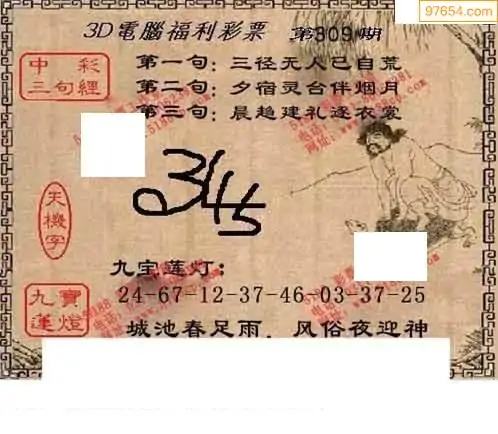 97654.com
3D電腦福利彩票 第309期
中彩三句經
第一句：三径无人已自荒
第二句：夕宿灵台伴烟月
第三句：晨趋建礼逐衣裳
天機字
345
九宝莲灯：
九寶蓮燈
24-67-12-37-46-03-37-25
城池春足雨．风俗夜迎神